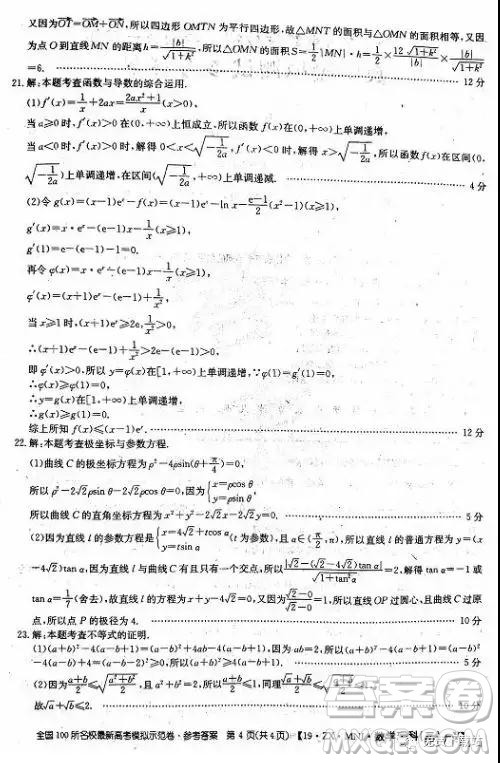 又因为OT=OM+ON,所以四边形 OMTN 为平行四边形,故△MNT 的面积与△OMN 的面积相等,又因
为点 O 到直线 MN 的距离 h=|b|/√(1+k²),所以△OMN 的面积 S=1/2|MN|·h=1/2×12√(1+k²)/|b|×|b|/√(1+k²)
=6. 12 分
21. 解:本题考查函数与导数的综合运用.
(1)f′(x)=1/x+2ax=(2ax²+1)/x(x>0),
当 a≥0 时,f′(x)>0 在(0,+∞)上恒成立,所以函数 f(x)在(0,+∞)上单调递增;
当 a<0 时,f′(x)>0 时,解得 0<x<√(-1/2a),f′(x)<0 时,解得 x>√(-1/2a),所以函数 f(x)在区间(0,
√(-1/2a))上单调递增,在区间(√(-1/2a),+∞)上单调递减. 4 分
(2)令 g(x)=(x-1)eˣ-f(x)=(x-1)eˣ-ln x-(e-1)/2(x²-1)(x≥1),
g′(x)=x·eˣ-(e-1)x-1/x(x≥1),
g′(1)=e-(e-1)-1=0.
再令 φ(x)=x·eˣ-(e-1)x-1/x(x≥1),
φ′(x)=(x+1)eˣ-(e-1)+1/x²,
当 x≥1 时,(x+1)eˣ≥2e,1/x²>0,
∴(x+1)eˣ-(e-1)+1/x²>2e-(e-1)>0,
即 φ′(x)>0,所以 y=φ(x)在[1,+∞)上单调递增,∵φ(1)=g′(1)=0,
∴φ(x)≥φ(1)=0,
∴y=g(x)在[1,+∞)上单调递增,
∴g(x)≥g(1)=0.
综上所知 f(x)≤(x-1)eˣ. 12 分
22. 解:本题考查极坐标与参数方程.
(1)曲线 C 的极坐标方程为 ρ²-4ρsin(θ+π/4)=0,
所以 ρ²-2√2ρsin θ-2√2ρcos θ=0,因为{x=ρcos θ
y=ρsin θ,
所以曲线 C 的直角坐标方程为 x²+y²-2√2x-2√2y=0. 5 分
(2)因为直线 l 的参数方程为{x=4√2+tcos α
y=tsin α(t 为参数),且 α∈(π/2,π),所以直线 l 的普通方程为 y=(x
-4√2)tan α,因为直线 l 与曲线 C 有且只有一个交点,所以|√2-(√2-4√2)tan α|/√(1+tan²α)=2,解得 tan α=-1 或
tan α=1/7(舍去),故直线 l 的方程为 x+y=4√2,又因为(√2-0)/(√2-0)=1,所以直线 OP 过圆心,且曲线 C 过原
点,所以点 P 的极径为 4. 10 分
23. 解:本题考查不等式的证明.
(1)(a+b)²-4(a+b-1)=(a-b)²+4ab-4(a+b-1),因为 ab=2,所以(a+b)²-4(a+b-1)=(a-b)²
-4(a+b)+4=(a-b-2)²≥0,所以(a+b)²≥4(a+b-1). 5 分
(2)因为(a+b)/2≤√((a²+b²)/2)
全国 100 所名校最新高考模拟示范卷·参考答案 第 4 页(共 4 页)